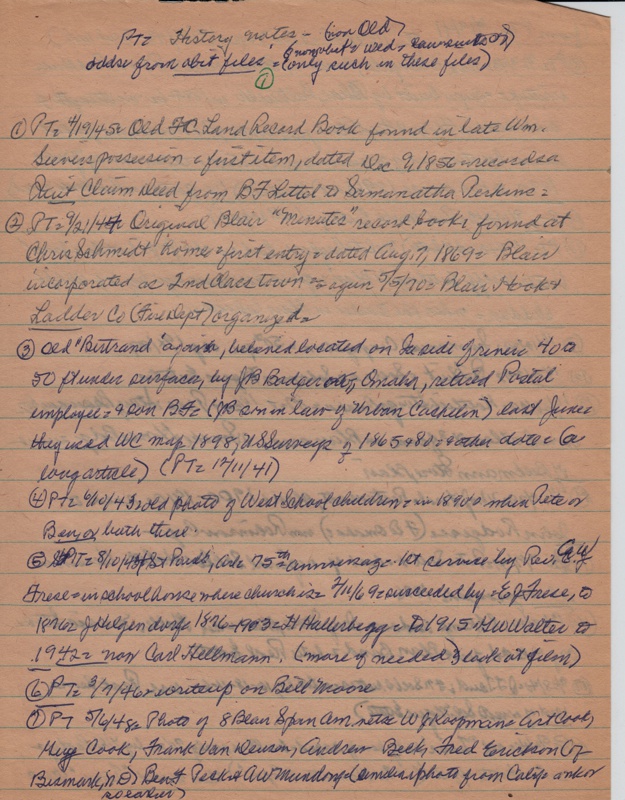 PT= History notes - (non Old)
odds from obit files = (only such in these files)
①
① PT= 4/19/45= Old FC Land Record Book found in late Wm.
Seevers possession = first item, dated Dec 9, 1856 = records a
Quit Claim Deed from BF Littel to Samanatha Perkins =
② PT= 9/21/44 Original Blair "Minutes" record book found at
Chris Schmidt home = first entry = dated Aug. 7, 1869 = Blair
incorporated as 2nd Class town = again 5/5/70 = Blair Hook &
Ladder Co (Fire Dept) organized =
③ Old "Bertrand" again, believed located on Ia side of river 40 a
50 ft under surface, by JB Badger, Omaha, retired Postal
employee = & son BF = (JB son in law of Urban Cachelin) last June
They used WC map 1898, US Surveys of 1865 & 80 = other data = (a
long article) (PT= 12/11/41)
④ PT= 6/10/43 old photo of West School children = in 1890s when Pete or
Ben, or both there
⑤ PT= 8/10/ St Pauls, 75th anniversary = 1st service by Rev.
Frese = in school house where church is = 2/11/69 = succeeded by = EJ Frese, to
1876 = J Helgendorf 1876-1903 = H Hallerbegg = To 1915 = HW Walter to
1942 = now Carl Hellmann. (more if needed, look at film)
⑥ PT= 3/7/46 = writeup on Bell Moore
⑦ PT 5/6/48= Photo of 8 Blair Span Am vets = WJ Koopman = Art Cook,
Hugg Cook, Frank Van Deusen, Andrew Beck, Fred Erickson (of
Bismark, ND) Ben F Peck & AW Mundorf (similar photo from Calif
speaker)